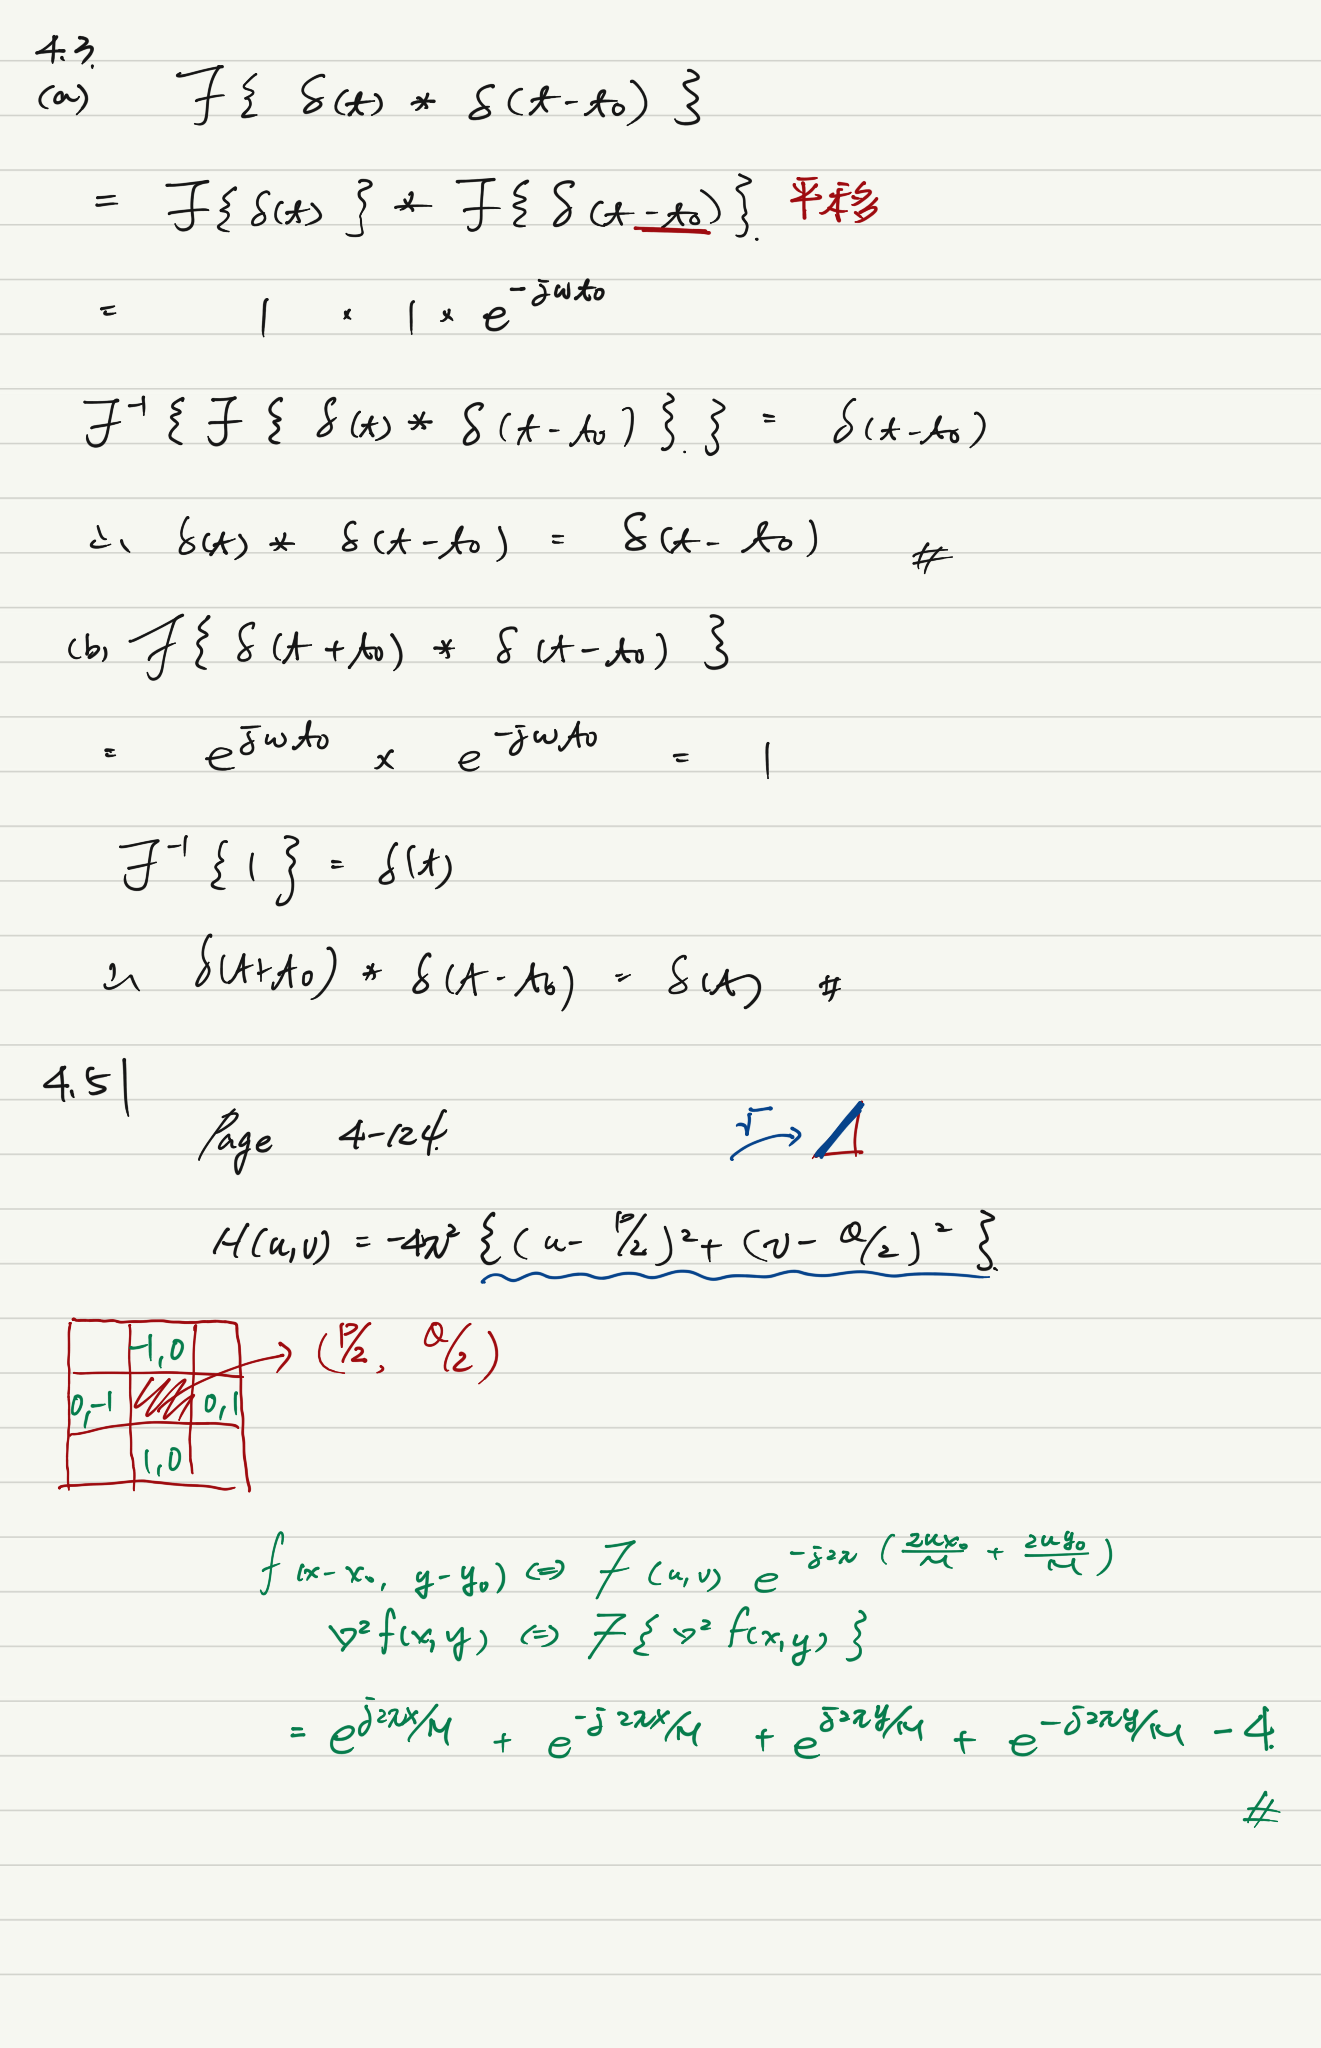 4.3.
(a) ℱ{ δ(t) * δ(t-t₀) }
= ℱ{ δ(t) } * ℱ{ δ(t-t₀) }. 平移
= 1 × 1 × e^{-jωt₀}
ℱ⁻¹{ ℱ{ δ(t) * δ(t-t₀) }. } = δ(t-t₀)
∴ δ(t) * δ(t-t₀) = δ(t-t₀) #
(b) ℱ{ δ(t+t₀) * δ(t-t₀) }
= e^{jωt₀} × e^{-jωt₀} = 1
ℱ⁻¹{ 1 } = δ(t)
∴ δ(t+t₀) * δ(t-t₀) = δ(t) #
4.51
Page 4-124
√ →
H(u,v) = -4π² { (u - P/2)² + (v - Q/2)² }
-1,0 → (P/2, Q/2)
0,-1 0,1
1,0
f(x-x₀, y-y₀) ⇔ F(u,v) e^{-j2π(2ux₀/M + 2uy₀/M)}
∇²f(x,y) ⇔ F{ ∇²f(x,y) }
= e^{j2πx/M} + e^{-j2πx/M} + e^{j2πy/M} + e^{-j2πy/M} - 4
#